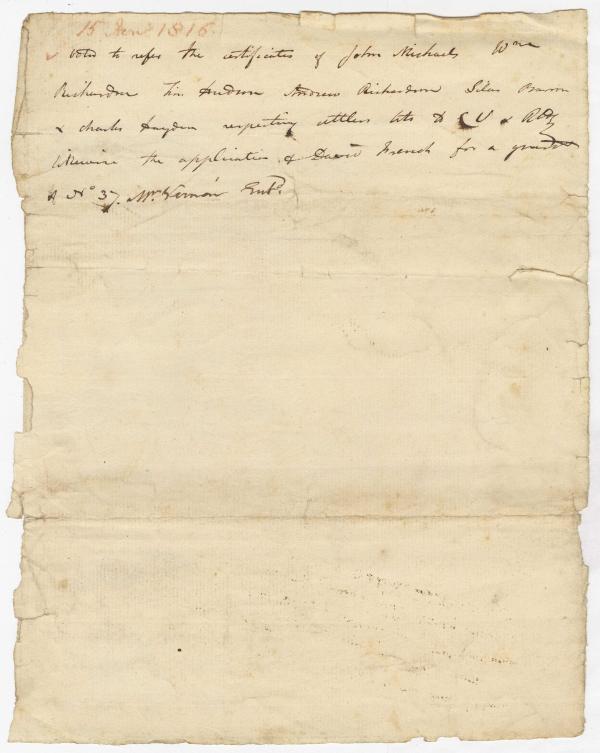 15 Jany 1816
Voted to refer the certificates of John Michaels Wm
Richardson Tim Hudson Andrew Richardson Silas Barron
& Charles Hayden respecting settlers lots to C V &
likewise the application of David French for a
of No 37. Mt Vernon Entd.